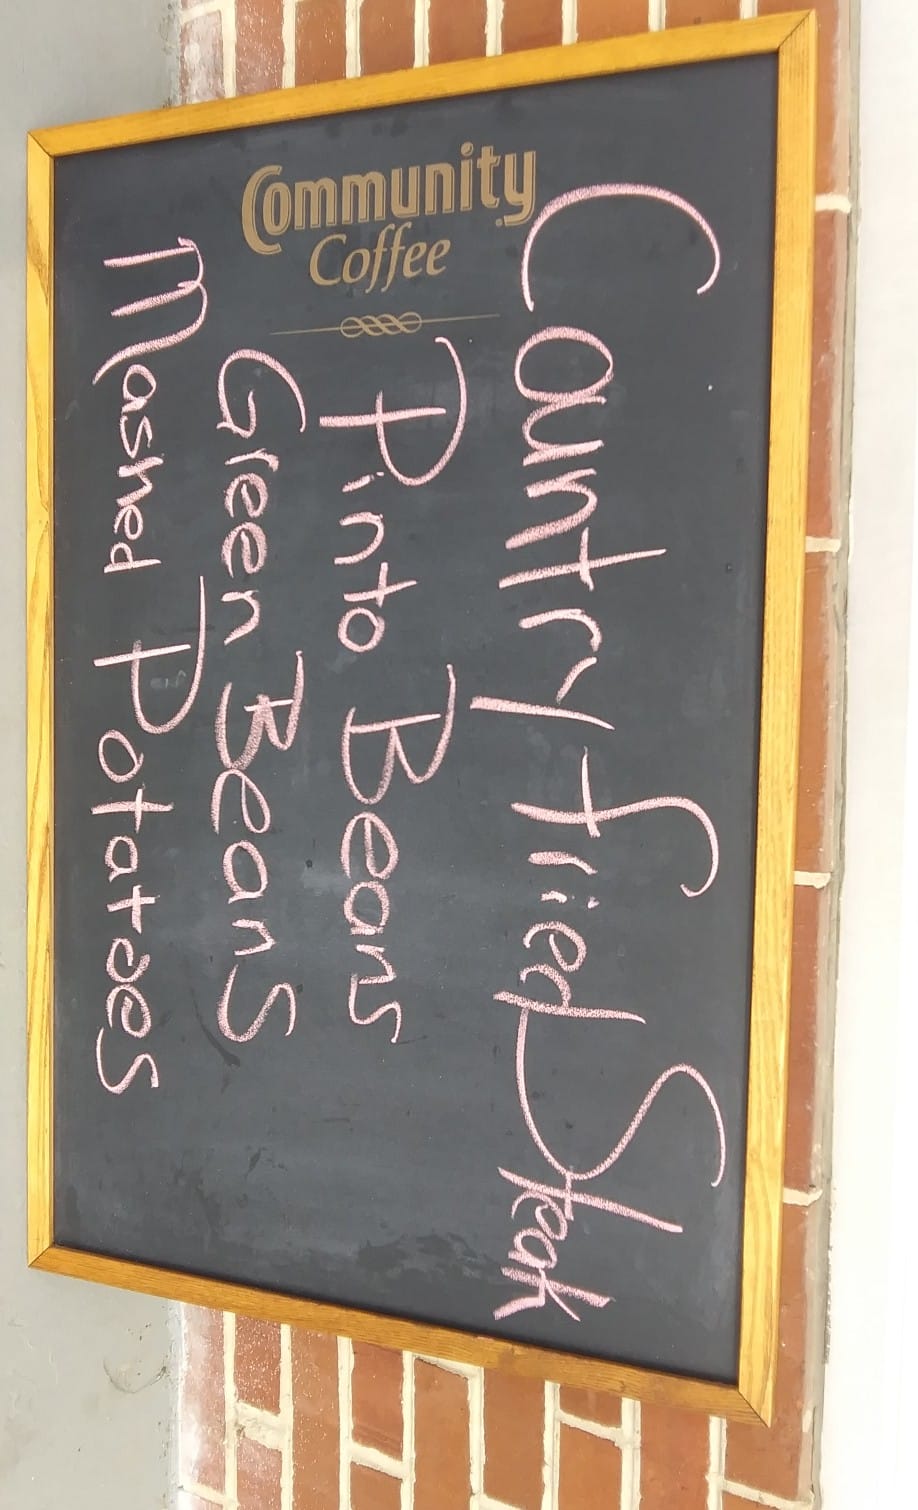 Community
Coffee
Country fried Steak
Pinto Beans
Green Beans
Mashed Potatoes